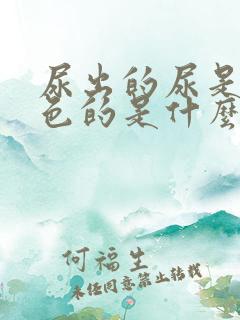 尿出的尿是
色的是什麼
何福生
未经同意禁止转载